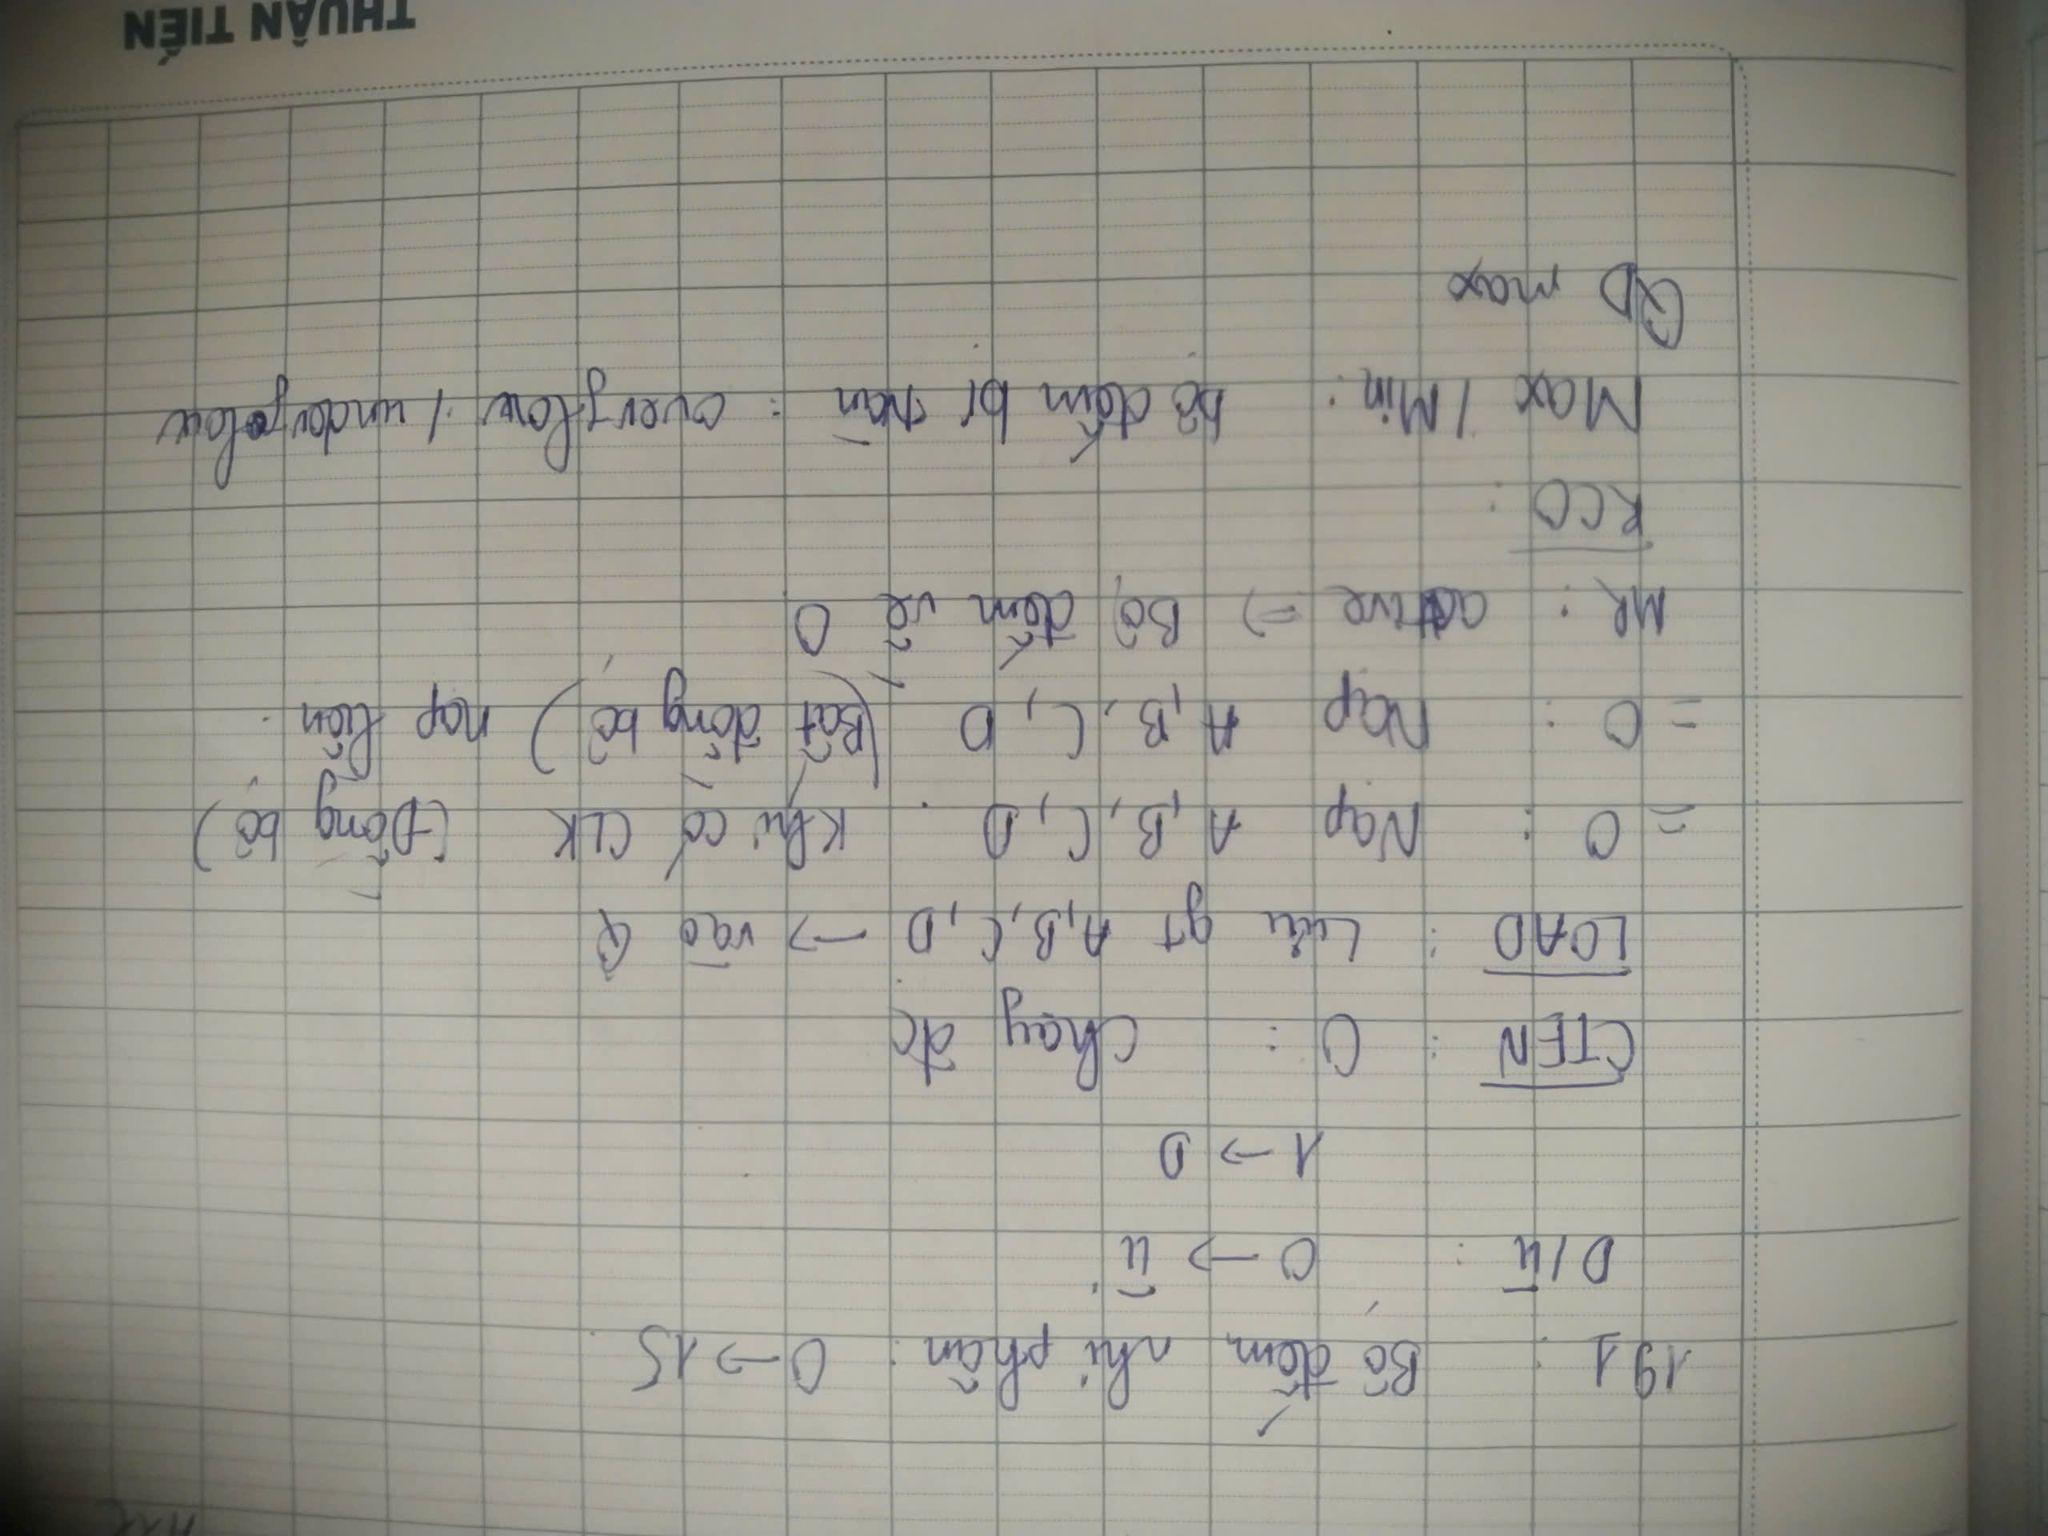 191 : Bộ đếm nhị phân : 0 → 15
D/Ū : 0 → Ū
1 → D
CTEN : 0 : chạy đc
LOAD : Lưu gt A,B,C,D → vào Q
= 0 : Nạp A,B,C,D . Khi có CLK (Đồng bộ)
= 0 : Nạp A,B,C,D (Bất đồng bộ) nạp liền
MR : active => Bộ đếm về 0
RCO :
Max / Min : bộ đếm bị tràn : overflow / underflow
QD max
THUẬN TIẾN